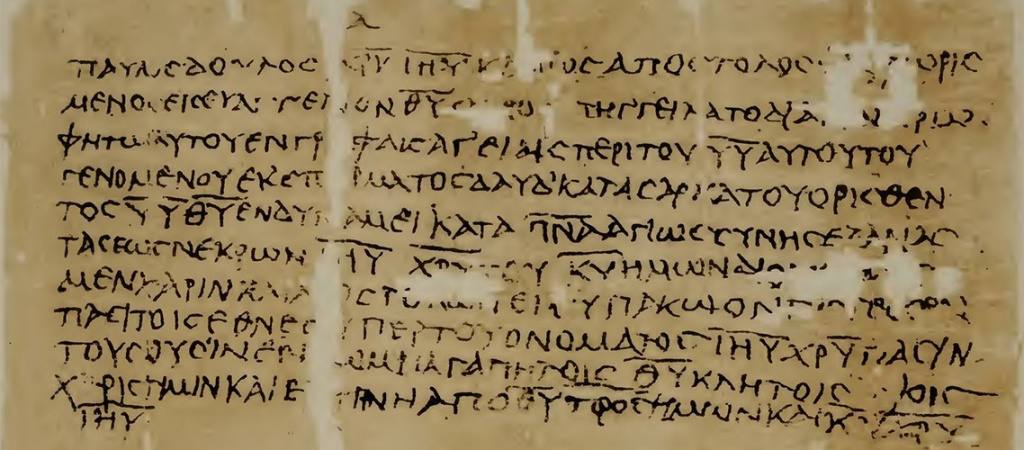 Α
ΠΑΥΛΟΣ ΔΟΥΛΟΣ ΧΡΥ ΙΗΥ ΚΛΗΤΟΣ ΑΠΟΣΤΟΛΟΣ ΩΡΙΣ
ΜΕΝΟΣ ΕΙΣ ΕΥΑΓΓΕΛΙΟΝ ΘΥ ΤΗΓΓΕΙΛΑΤΟ ΔΙΑ
ΦΗΤΩΝ ΑΥΤΟΥ ΕΝ ΓΡΑΦΑΙΣ ΑΓΕΙΑΙΣ ΠΕΡΙ ΤΟΥ ΥΥ ΑΥΤΟΥ ΤΟΥ
ΓΕΝΟΜΕΝΟΥ ΕΚ ΣΠΕΡΜΑΤΟΣ ΔΑΥΔ ΚΑΤΑ ΣΑΡΚΑ ΤΟΥ ΟΡΙΣΘΕΝ
ΤΟΣ ΥΥ ΘΥ ΕΝ ΔΥΝΑΜΕΙ ΚΑΤΑ ΠΝΑ ΑΓΙΩΣΥΥΝΗΣ ΕΞ ΑΝΑΣ
ΤΑΣΕΩΣ ΝΕΚΡΩΝ ΙΗΥ ΧΡΥ ΤΟΥ ΚΥ ΗΜΩΝ
ΜΕΝ ΧΑΡΙΝ ΚΑΙ ΑΠΟΣΤΟΛΗΝ ΕΙΣ ΥΠΑΚΩΟΝ
ΠΑΣΙ ΤΟΙΣ ΕΘΝΕΣΙ ΥΠΕΡ ΤΟΥ ΟΝΟΜΑΤΟΣ ΙΗΥ ΧΡΥ ΠΑΣΥΝ
ΤΟΥΣ ΟΥΣΙΝ ΕΝ ΡΩΜΗ ΑΓΑΠΗΤΟΙΣ ΘΥ ΚΛΗΤΟΙΣ ΑΓΙΟΙΣ
ΧΑΡΙΣ ΗΜΙΝ ΚΑΙ ΕΙΡΗΝΗ ΑΠΟ ΘΥ ΠΡΟΣ ΗΜΩΝ ΚΑΙ ΚΥ ΧΡΥ
ΙΗΥ